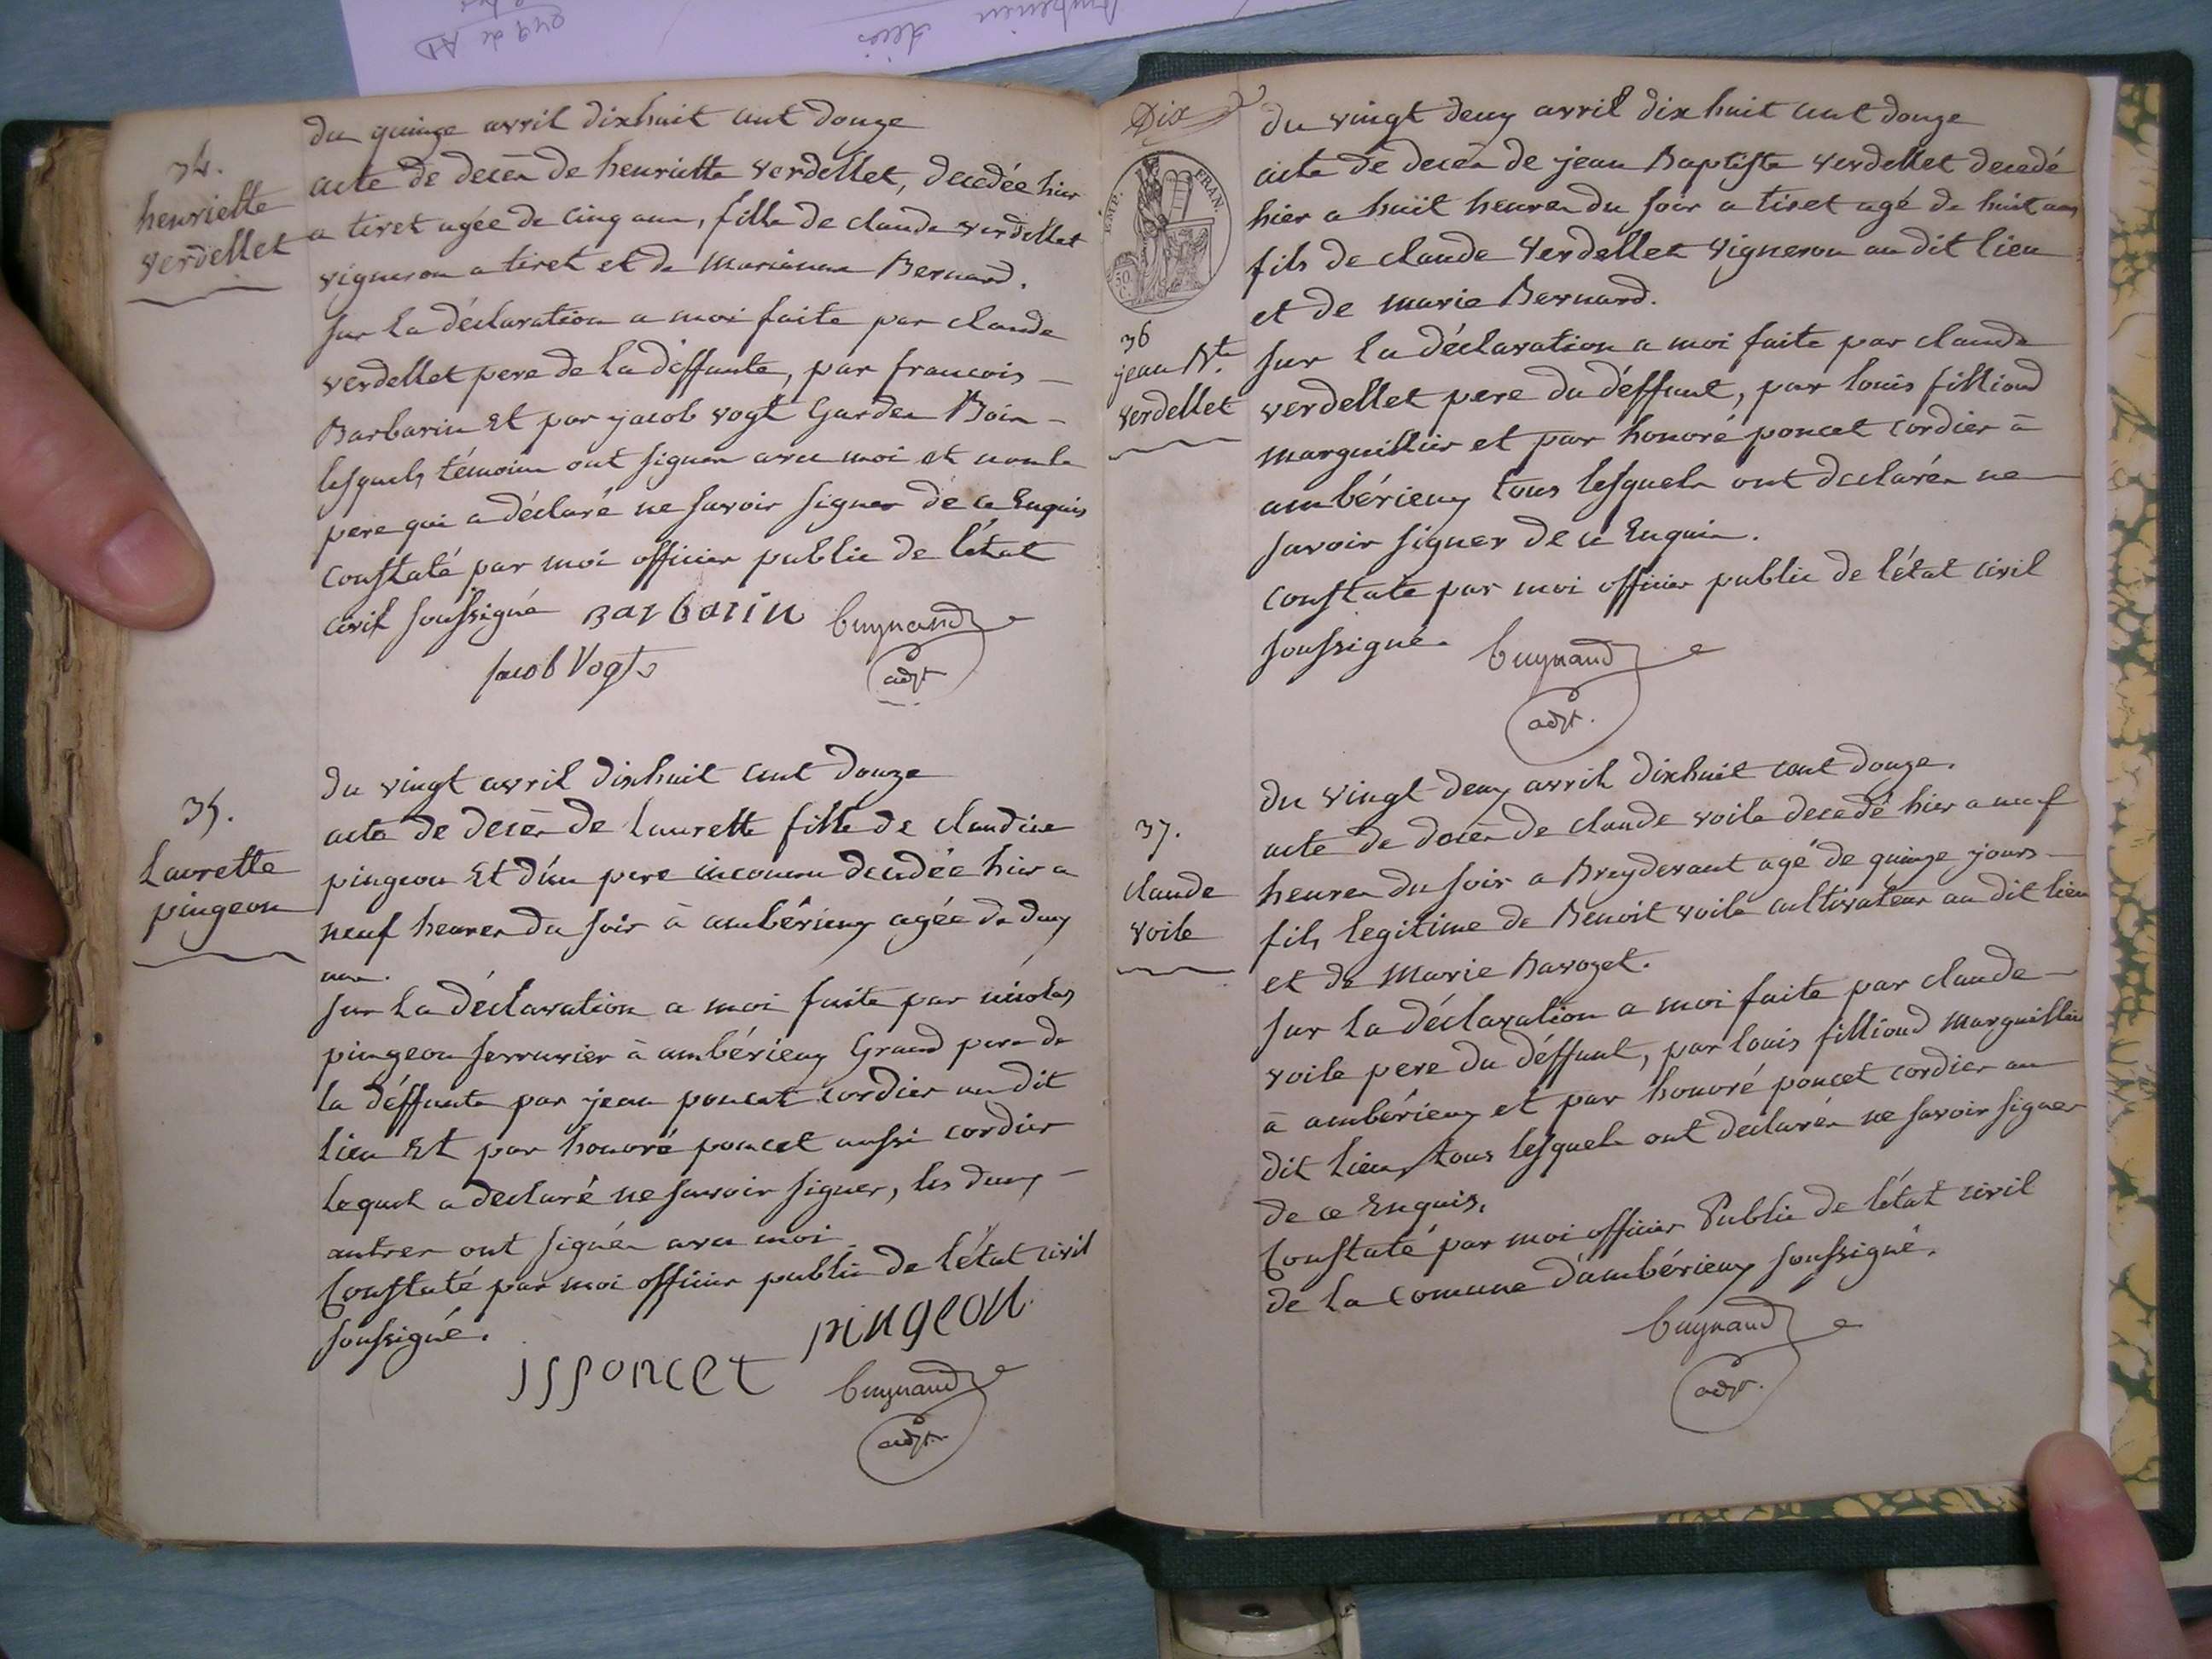 34.
henriette
verdellet
du quinze avril dixhuit cent douze
acte de decèn de henriette verdellet, decedée hier
a tiret agée de cinq ans, fille de claude verdellet
vigneron a tiret et de marianne Bernard.
sur la déclaration a moi faite par claude
verdellet pere de la déffunte, par francois
Barbarin Et par jacob vogt Garden Boin
lesquels témoins ont signer avec moi et non le
pere qui a déclaré ne savoir signer de ce Enquis
constaté par moi officier public de l'état
civil soussigné Barbarin buynand
Jacob Vogt adjt
35.
Laurette
pingeon
du vingt avril dixhuit cent douze
acte de decèn de Laurette fille de claudine
pingeon Et d'un pere inconnu decedée hier a
neuf heures du soir à ambérieux agée de deux
ans.
sur la déclaration a moi faite par nicolas
pingeon serrurier à ambérieux Grand pere de
la déffunte par jean poncet cordier au dit
lieu Et par honoré poncet aussi cordier
lequel a declaré ne savoir signer, les deux
autres ont signés avec moi
Constaté par moi officier public de l'état civil
soussigné. pingeon
JSPONCET buynand
adjt.
Dix
EMP. FRAN.
36
jean Bte.
verdellet
du vingt deux avril dix huit cent douze
acte de decès de jean Baptiste verdellet decedé
hier a huit heures du soir a tiret agé de huit ans
fils de claude Verdellet Vigneron au dit lieu
et de marie Bernard.
sur la déclaration a moi faite par claude
verdellet pere du déffunt, par louis filliond
marguillier et par honoré poncet cordier à
ambérieux tous lesquels ont declarés ne
savoir signer de ce Enquis.
constaté par moi officier public de l'état civil
soussigné. buynand
adjt.
37.
claude
voile
du vingt deux avril dixhuit cent douze.
acte de decès de claude voile decedé hier a neuf
heures du soir a Breydevant agé de quinze jours
fils legitime de Benoit voile cultivateur au dit lieu
et de Marie Bavozet.
sur la déclaration a moi faite par claude
voile pere du déffunt, par louis filliond marguillier
à ambérieux et par honoré poncet cordier au
dit lieu, tous lesquels ont declarés ne savoir signer
de ce Enquis.
Constaté par moi officier Public de l'état civil
de la comune d'ambérieux soussigné.
buynand
adjt.